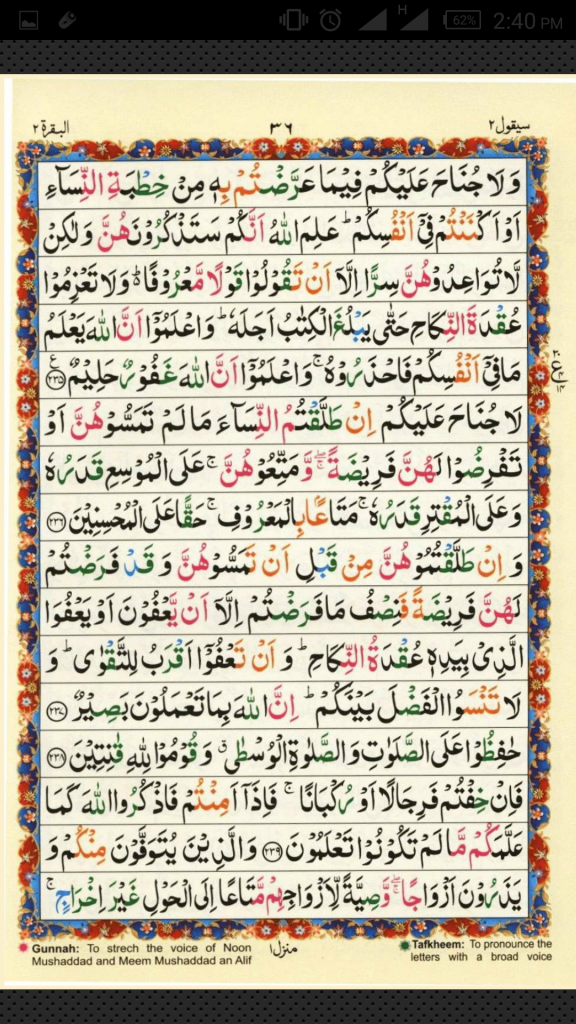 H 62% 2:40 PM
البقرة ٢ ٣٦ سيقول ٢
وَلَا جُنَاحَ عَلَيْكُمْ فِيْمَا عَرَّضْتُمْ بِهٖ مِنْ خِطْبَةِ النِّسَآءِ
اَوْ اَكْنَنْتُمْ فِيْٓ اَنْفُسِكُمْ ؕ عَلِمَ اللّٰهُ اَنَّكُمْ سَتَذْكُرُوْنَهُنَّ وَلٰكِنْ
لَّا تُوَاعِدُوْهُنَّ سِرًّا اِلَّآ اَنْ تَقُوْلُوْا قَوْلًا مَّعْرُوْفًا ۬ؕ وَلَا تَعْزِمُوْا
عُقْدَةَ النِّكَاحِ حَتّٰى يَبْلُغَ الْكِتٰبُ اَجَلَهٗ ؕ وَاعْلَمُوْٓا اَنَّ اللّٰهَ يَعْلَمُ
مَا فِيْٓ اَنْفُسِكُمْ فَاحْذَرُوْهُ ۚ وَاعْلَمُوْٓا اَنَّ اللّٰهَ غَفُوْرٌ حَلِيْمٌ ۝٢٣٥
لَا جُنَاحَ عَلَيْكُمْ اِنْ طَلَّقْتُمُ النِّسَآءَ مَا لَمْ تَمَسُّوْهُنَّ اَوْ
تَفْرِضُوْا لَهُنَّ فَرِيْضَةً ۖۚ وَّمَتِّعُوْهُنَّ ۚ عَلَى الْمُوْسِعِ قَدَرُهٗ
وَعَلَى الْمُقْتِرِ قَدَرُهٗ ۚ مَتَاعًۢا بِالْمَعْرُوْفِ ۚ حَقًّا عَلَى الْمُحْسِنِيْنَ ۝٢٣٦
وَاِنْ طَلَّقْتُمُوْهُنَّ مِنْ قَبْلِ اَنْ تَمَسُّوْهُنَّ وَقَدْ فَرَضْتُمْ
لَهُنَّ فَرِيْضَةً فَنِصْفُ مَا فَرَضْتُمْ اِلَّآ اَنْ يَّعْفُوْنَ اَوْ يَعْفُوَا
الَّذِيْ بِيَدِهٖ عُقْدَةُ النِّكَاحِ ؕ وَاَنْ تَعْفُوْٓا اَقْرَبُ لِلتَّقْوٰى ؕ وَ
لَا تَنْسَوُا الْفَضْلَ بَيْنَكُمْ ؕ اِنَّ اللّٰهَ بِمَا تَعْمَلُوْنَ بَصِيْرٌ ۝٢٣٧
حٰفِظُوْا عَلَى الصَّلَوٰتِ وَالصَّلٰوةِ الْوُسْطٰى ۗ وَقُوْمُوْا لِلّٰهِ قٰنِتِيْنَ ۝٢٣٨
فَاِنْ خِفْتُمْ فَرِجَالًا اَوْ رُكْبَانًا ۚ فَاِذَآ اَمِنْتُمْ فَاذْكُرُوا اللّٰهَ كَمَا
عَلَّمَكُمْ مَّا لَمْ تَكُوْنُوْا تَعْلَمُوْنَ ۝٢٣٩ وَالَّذِيْنَ يُتَوَفَّوْنَ مِنْكُمْ وَ
يَذَرُوْنَ اَزْوَاجًا ۖۚ وَّصِيَّةً لِّاَزْوَاجِهِمْ مَّتَاعًا اِلَى الْحَوْلِ غَيْرَ اِخْرَاجٍ ۚ
Gunnah: To strech the voice of Noon
Mushaddad and Meem Mushaddad an Alif
منزل ١
Tafkheem: To pronounce the
letters with a broad voice